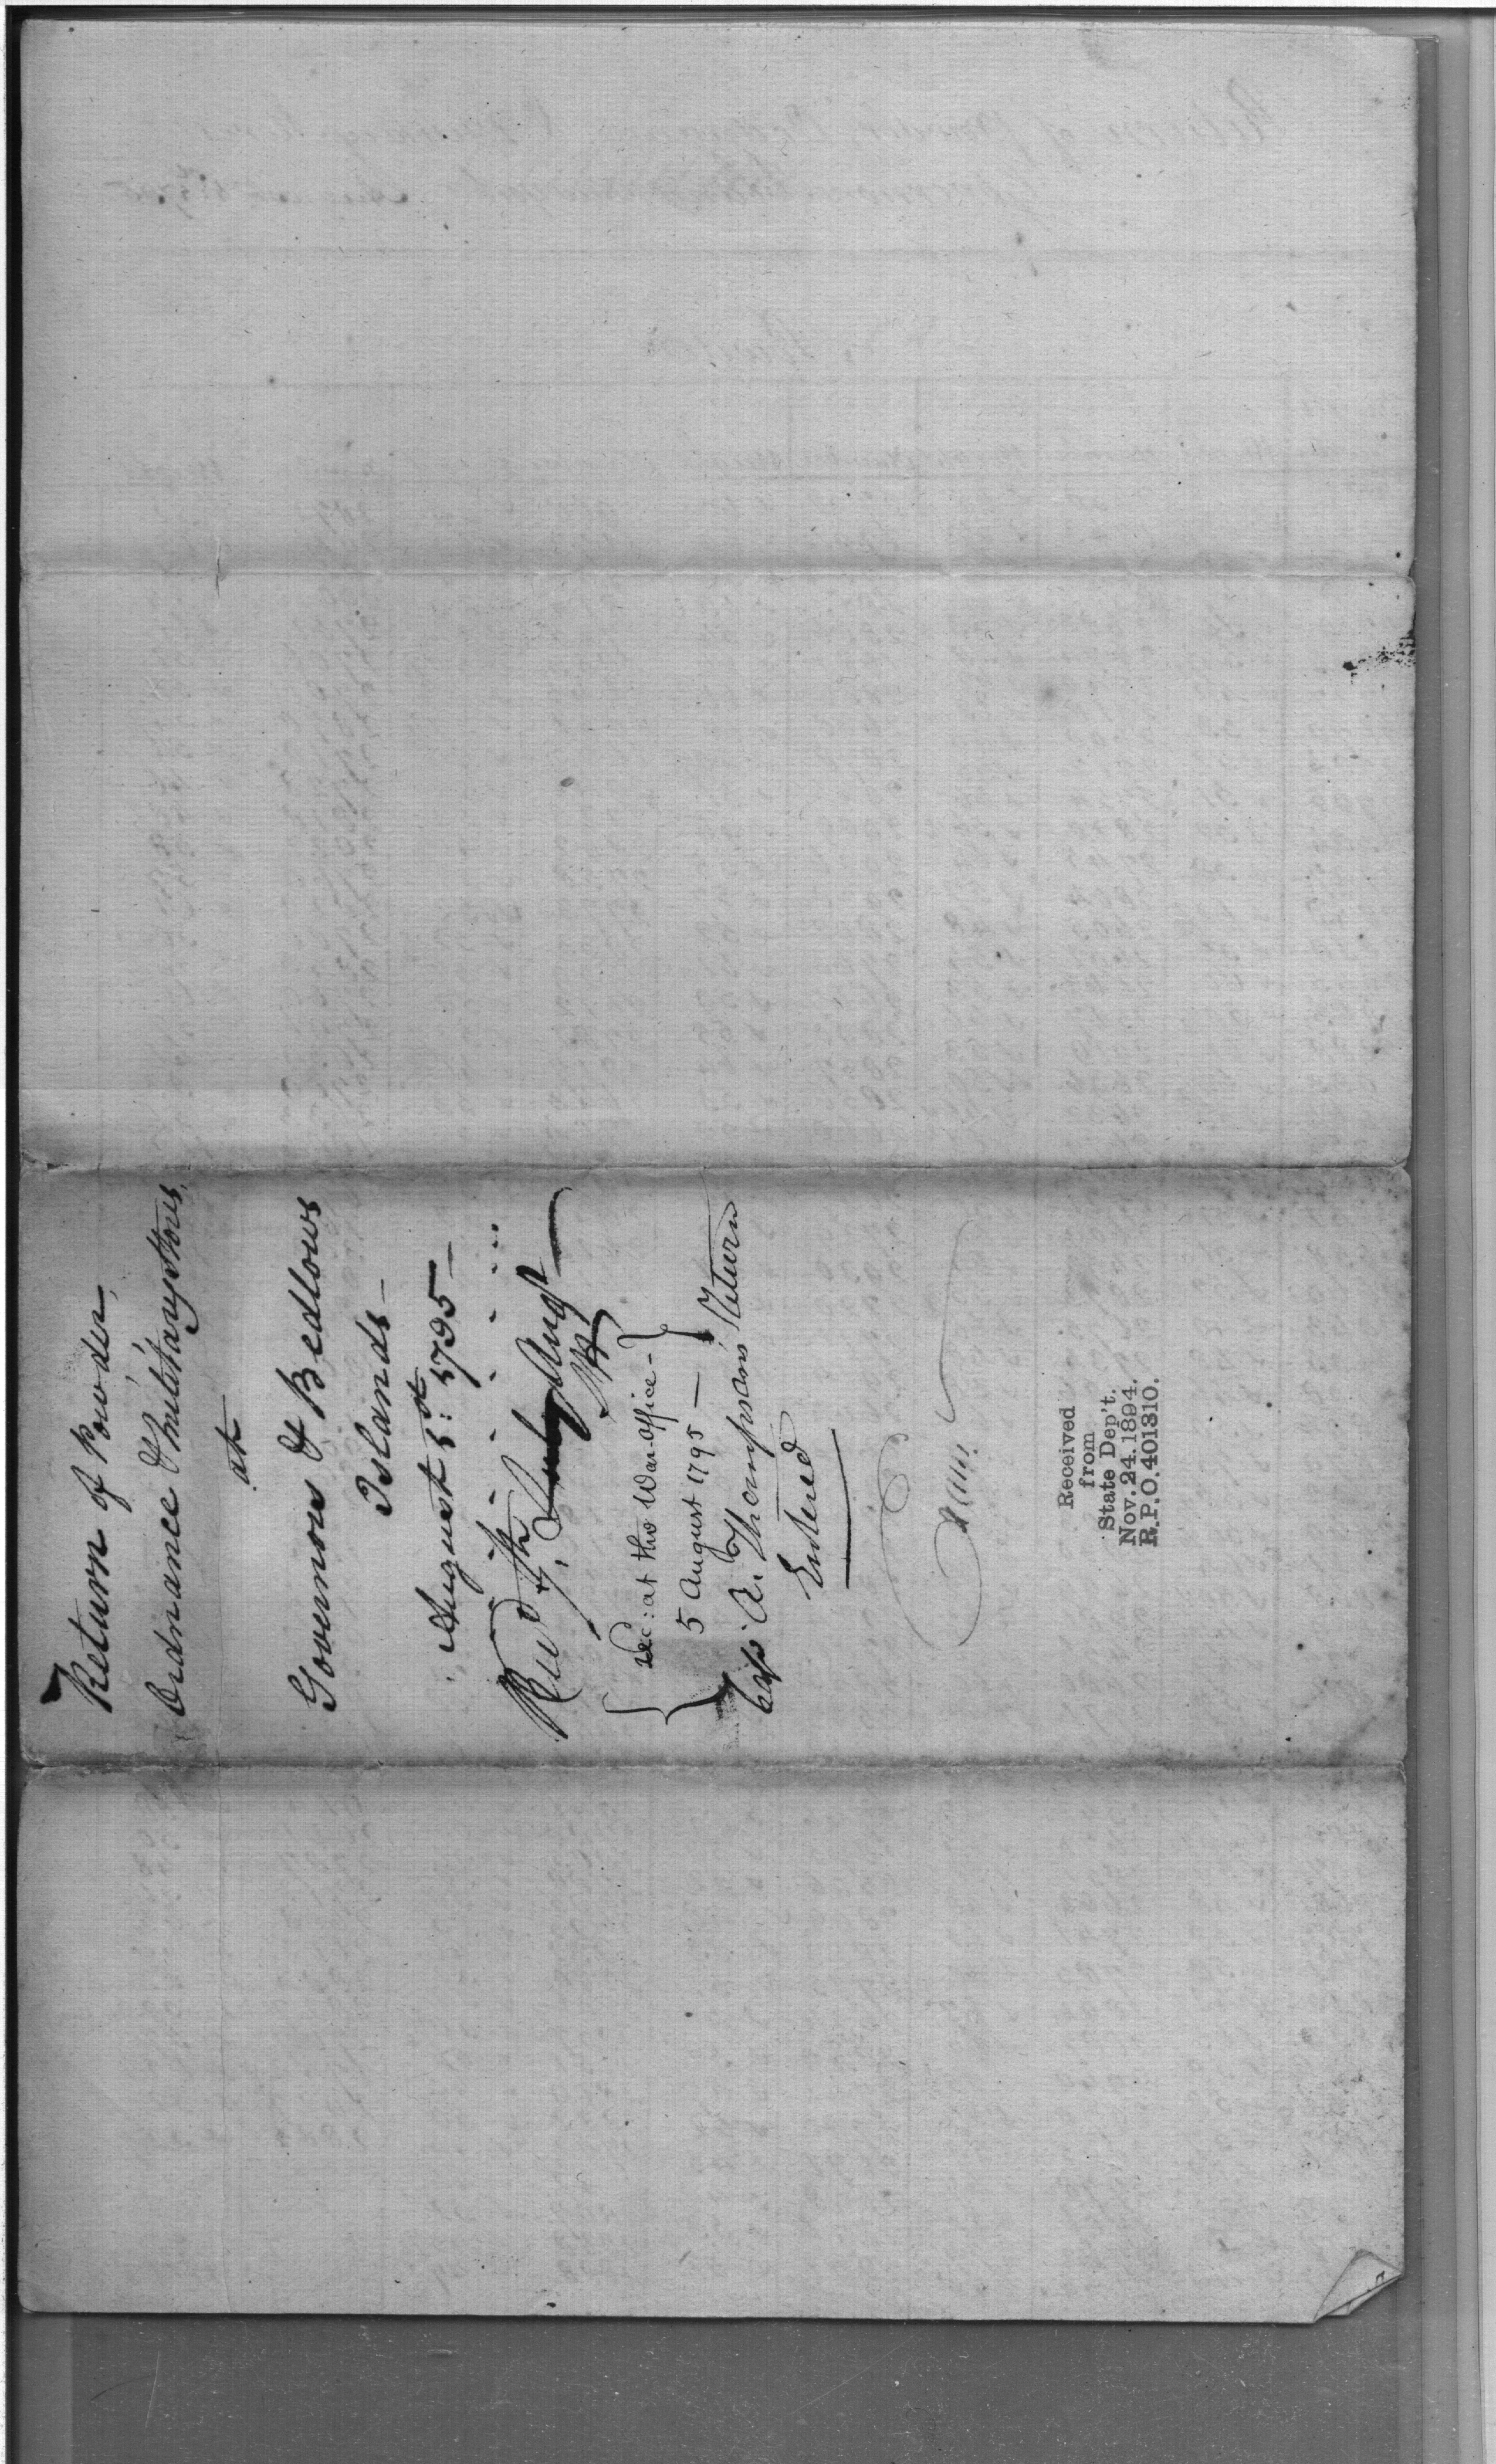 Return of Powder,
Ordnance & Military Stores,
at
Governors & Bedlows
Islands –
August 1st: 1795 –
Recd. 7th. Augst
Rec: at the War-office –
5 August 1795 –
Capt A. Thompsons Return
Entered
Received
from
State Dep't.
Nov. 24. 1894.
R.P.O. 401310.